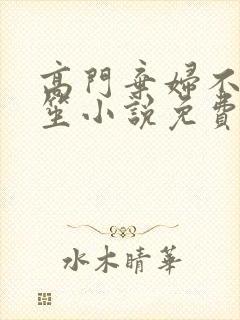 高門棄婦不
笙小說免費
水木晴華